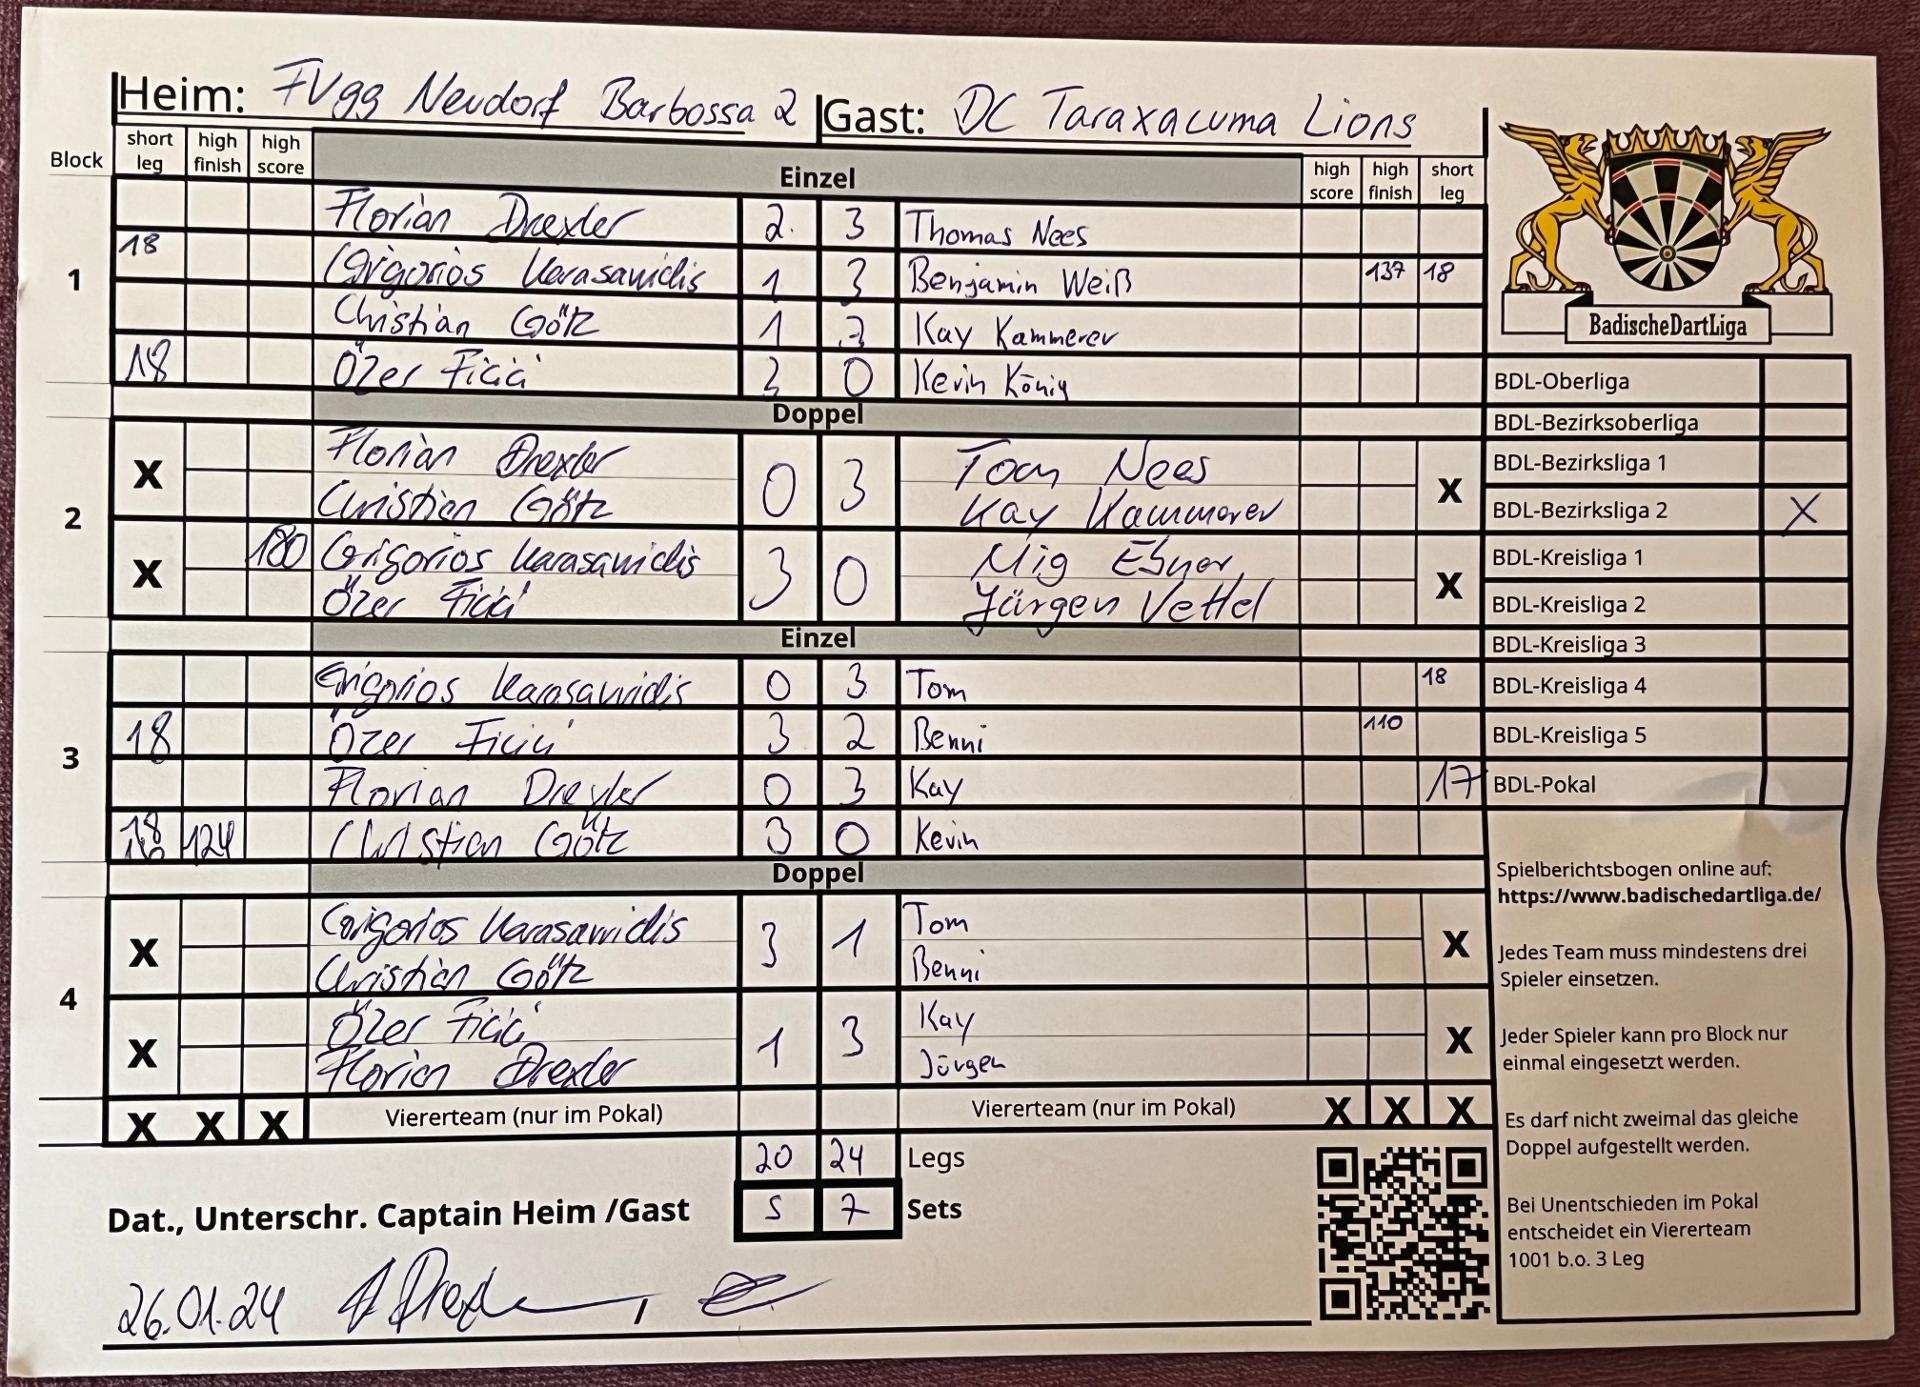 Heim: FVgg Neudorf Barbossa 2 Gast: DC Taraxacuma Lions
Block short leg high finish high score Einzel high score high finish short leg
1
Florian Drexler 2 3 Thomas Nees
18 Grigorios Karasavvidis 1 3 Benjamin Weiß 137 18
Christian Götz 1 3 Kay Kammerer
18 Özer Ficici 3 0 Kevin König
BadischeDartLiga
Doppel
2
X Florian Drexler 0 3 Tom Nees X
Christian Götz Kay Kammerer
X 180 Grigorios Karasavvidis 3 0 Mig Ebner X
Özer Ficici Jürgen Vettel
Einzel
3
Grigorios Karasavvidis 0 3 Tom 18
18 Özer Ficici 3 2 Benni 110
Florian Drexler 0 3 Kay 17
18 16 124 Christian Götz 3 0 Kevin
Doppel
4
X Grigorios Karasavvidis 3 1 Tom X
Christian Götz Benni
X Özer Ficici 1 3 Kay X
Florian Drexler Jürgen
X X X Viererteam (nur im Pokal) Viererteam (nur im Pokal) X X X
20 24 Legs
5 7 Sets
Dat., Unterschr. Captain Heim /Gast
26.01.24
BDL-Oberliga
BDL-Bezirksoberliga
BDL-Bezirksliga 1
BDL-Bezirksliga 2 X
BDL-Kreisliga 1
BDL-Kreisliga 2
BDL-Kreisliga 3
BDL-Kreisliga 4
BDL-Kreisliga 5
BDL-Pokal
Spielberichtsbogen online auf:
https://www.badischedartliga.de/
Jedes Team muss mindestens drei
Spieler einsetzen.
Jeder Spieler kann pro Block nur
einmal eingesetzt werden.
Es darf nicht zweimal das gleiche
Doppel aufgestellt werden.
Bei Unentschieden im Pokal
entscheidet ein Viererteam
1001 b.o. 3 Leg